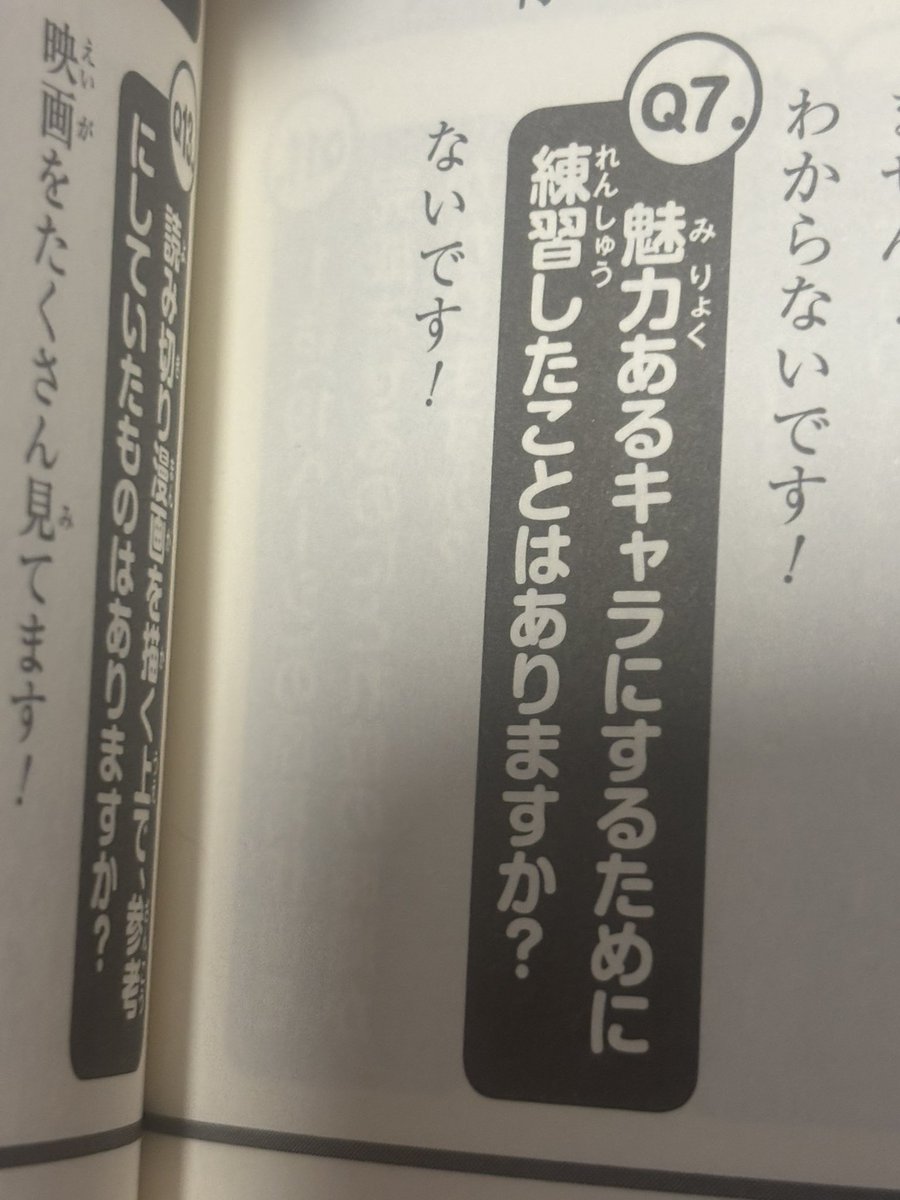 わからないです！
Q7.
魅力あるキャラにするために
練習したことはありますか？
ないです！
Q13.
読み切り漫画を描く上で、参考
にしていたものはありますか？
映画をたくさん見てます！